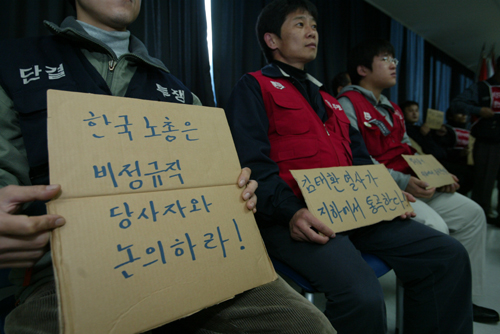 단결
투쟁
한국노총은
비정규직
당사자와
논의하라!
김태환 열사가
지하에서 통곡한다